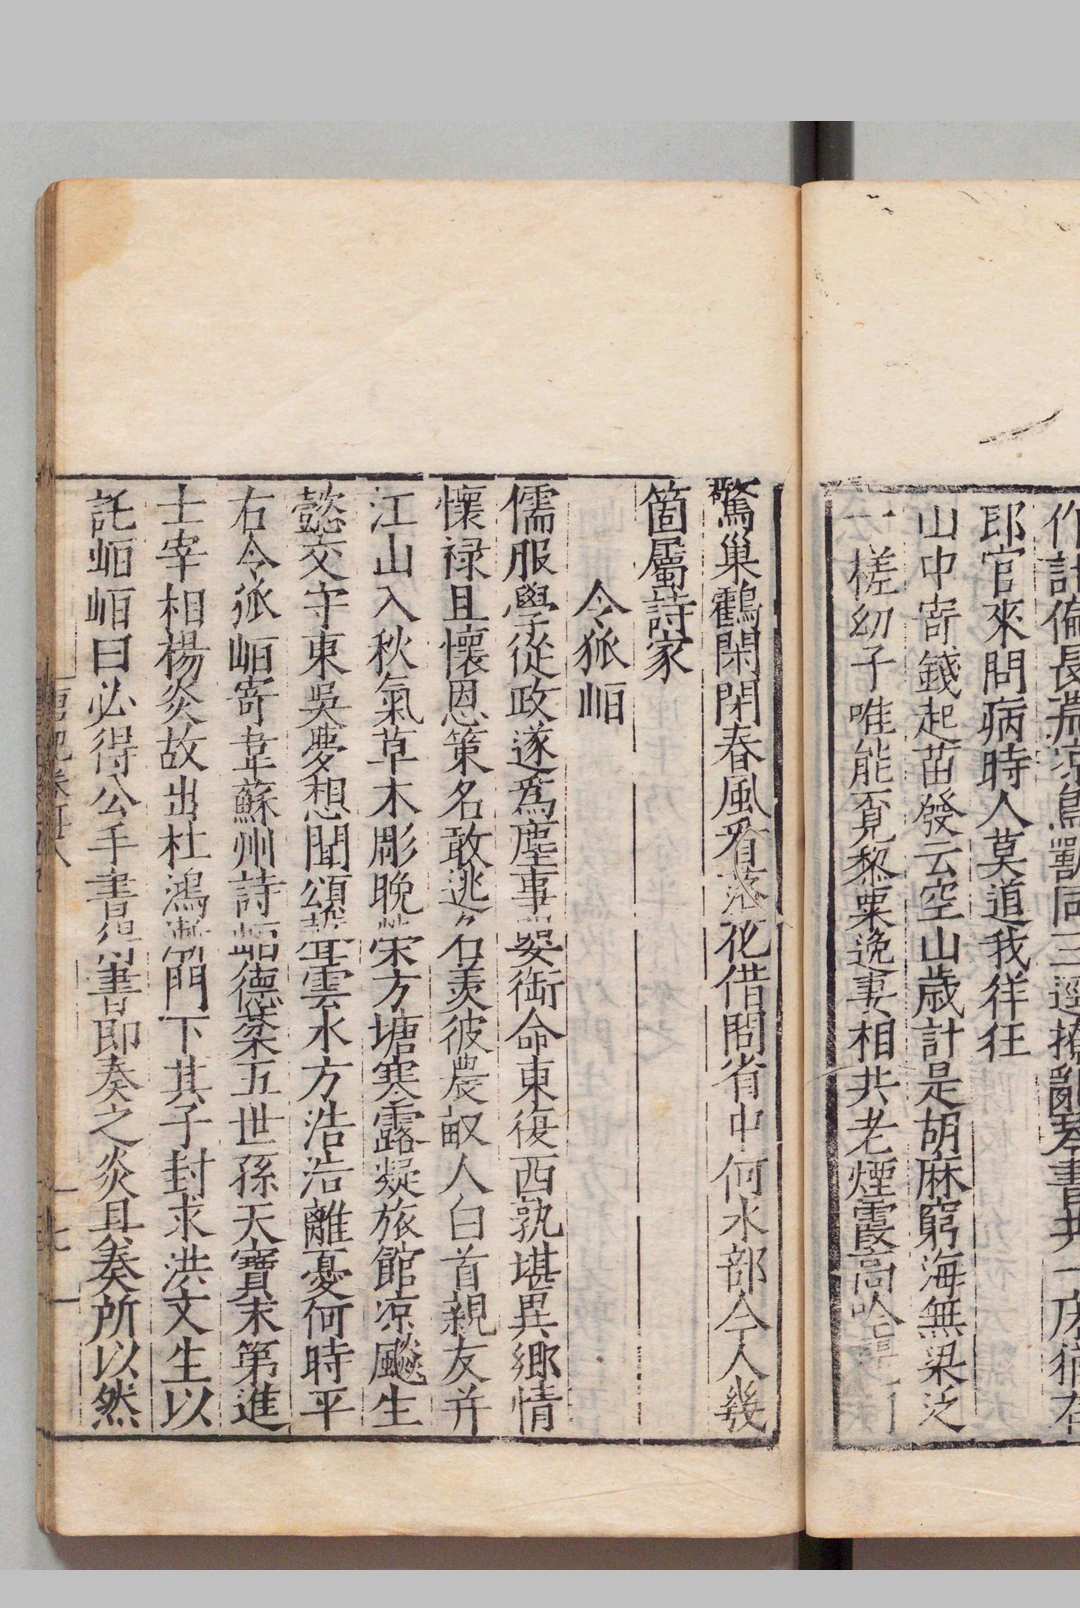 郎官來問病時人莫道我徉狂
山中寄錢起苗發云空山歲計是胡麻窮海無梁泛
一槎幼子唯能覓梨栗逸妻相共老煙霞高吟
驚巢鶴閑閉春風看落花借問省中何水部今人幾
箇屬詩家
令狐峘
儒服學從政遂爲塵事嬰銜命東復西孰堪異鄉情
懷禄且懷恩策名敢逃名羡彼農畝人白首親友并
江山入秋氣草木彫晚榮方塘寒露凝旅館凉飇生
懿交守東吳夢想聞頌聲雲水方浩浩離憂何時平
右令狐峘寄韋蘇州詩峘德棻五世孫天寶末第進
士宰相楊炎故出杜鴻漸門下其子封求洪文生以
託峘峘曰必得公手書得書即奏之炎具奏所以然